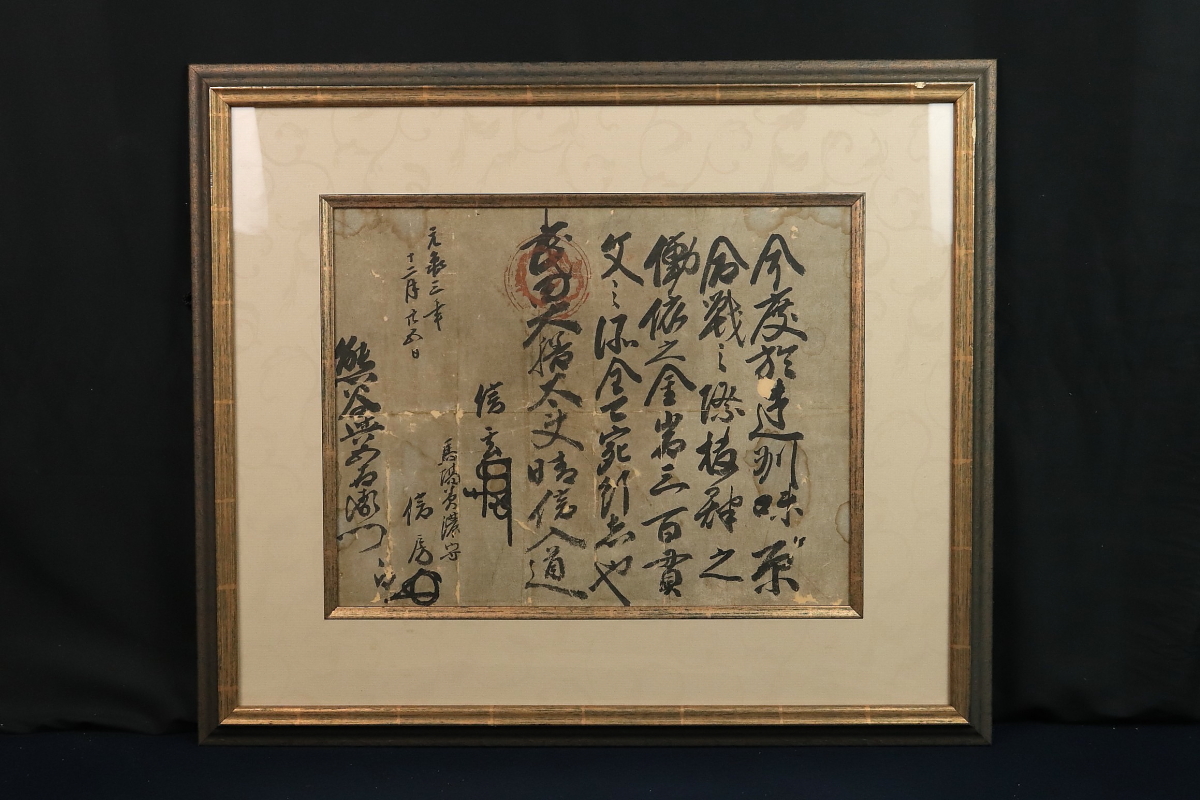 今度於遠州味原
合戦之際抜群之
働依之金岩三百貫
文之添全可宛行者也
武田大膳大夫晴信入道
信玄
馬場美濃守
信房
元亀三年
十二月廿五日
熊谷与五右衛門